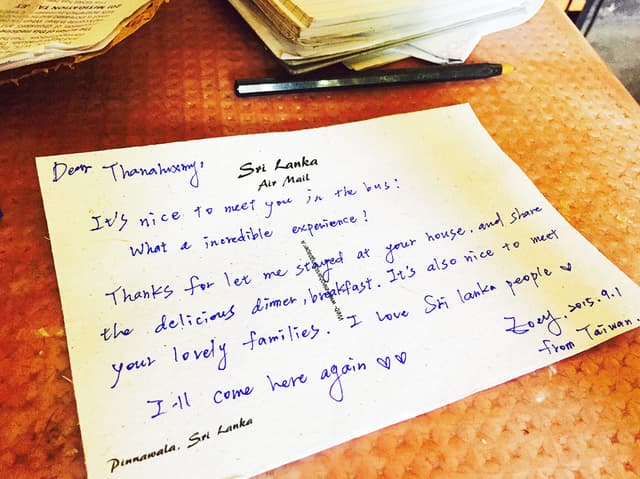 Dear Thanaluxmy,
Sri Lanka
Air Mail
It's nice to meet you in the bus!
What a incredible experience!
Thanks for let me stayed at your house. and share
the delicious dinner, breakfast. It's also nice to meet
your lovely families. I love Sri lanka people ♡
I'll come here again ♡♡
Zoey. 2015.9.1
from Taiwan.
Pinnawala, Sri Lanka